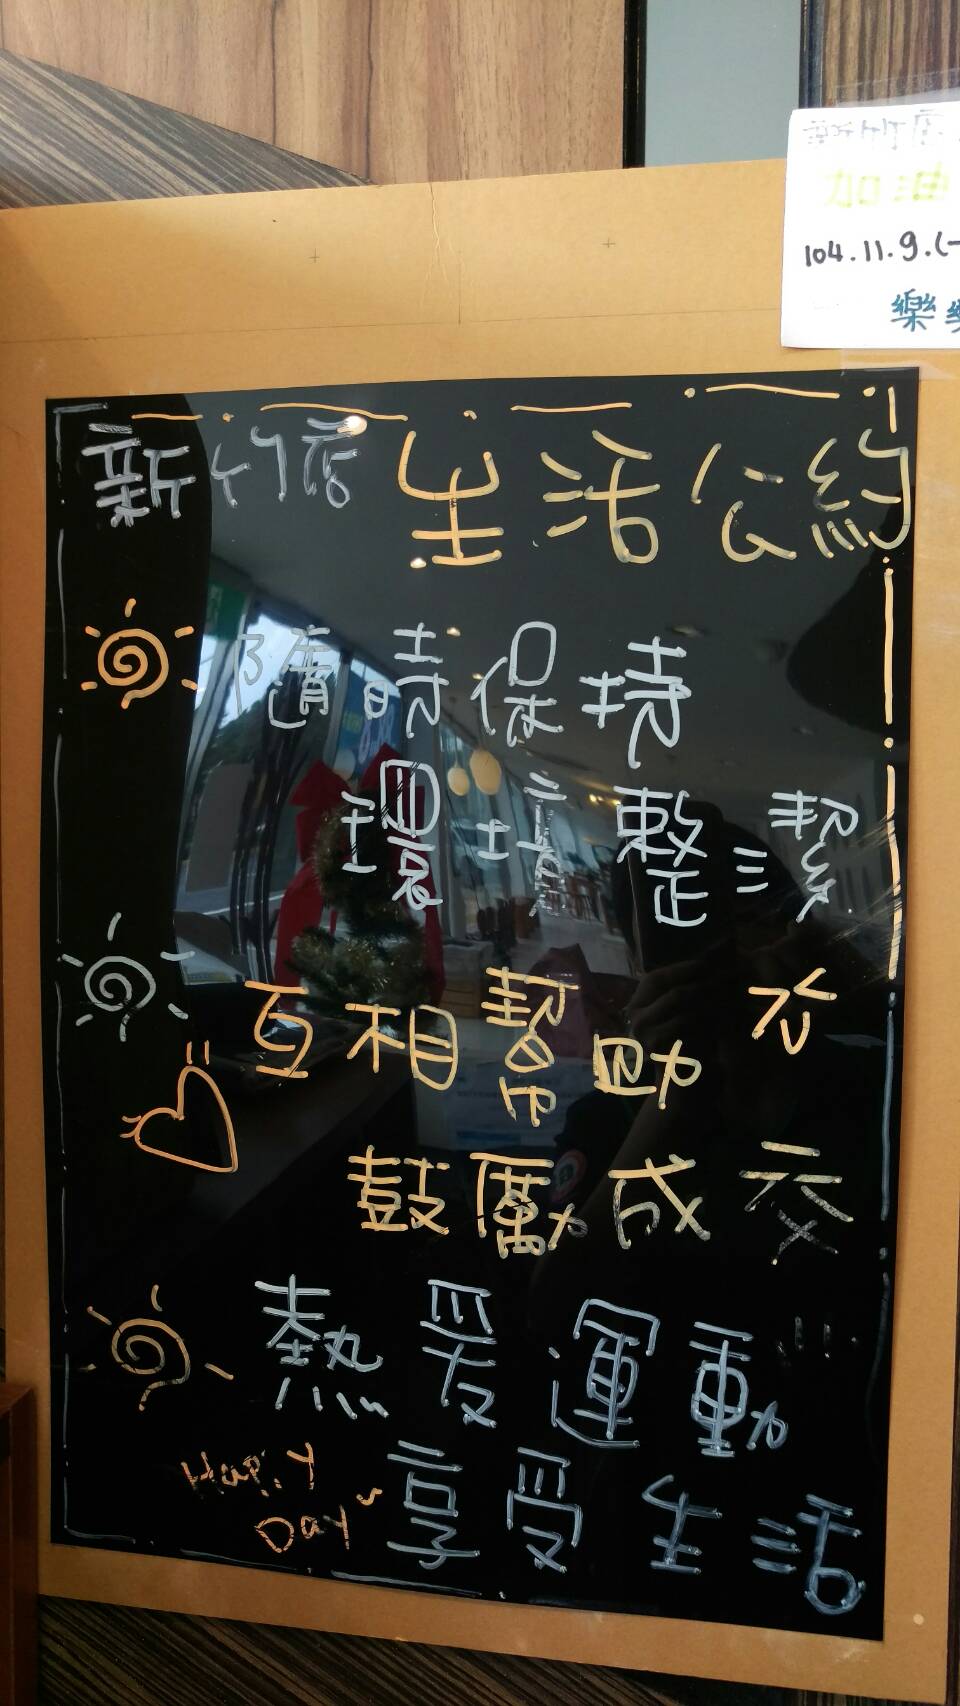 新竹店
加油
104.11.9.(一
樂
新竹店 生活公約
隨時保持
環境整潔
互相幫助
鼓勵成交
熱愛運動
享受生活
Happy
Day~